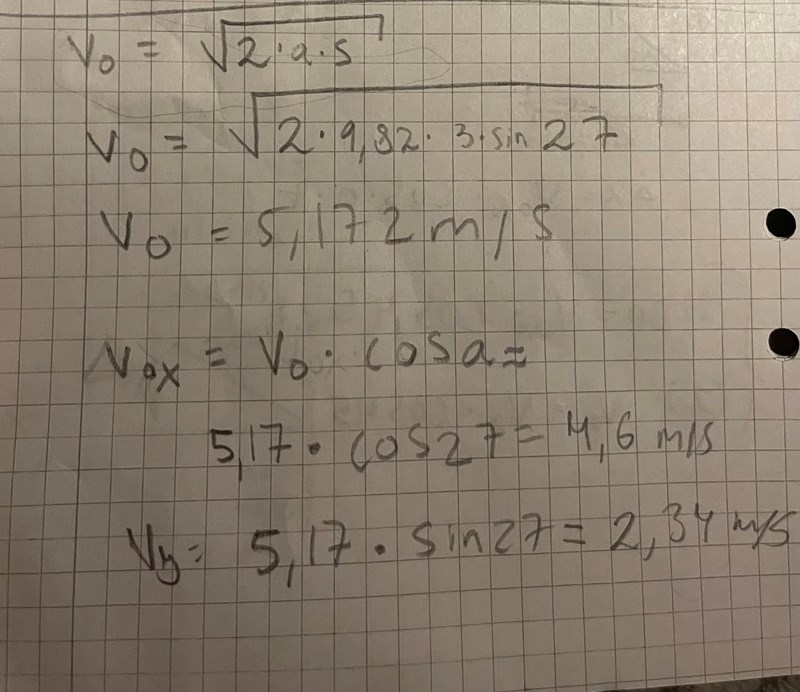 V₀ = √2·a·s
V₀ = √2·9,82·3·sin 27
V₀ = 5,172 m/s
V₀ₓ = V₀· cosa=
5,17· cos27= 4,6 m/s
Vy= 5,17· sin27= 2,34 m/s